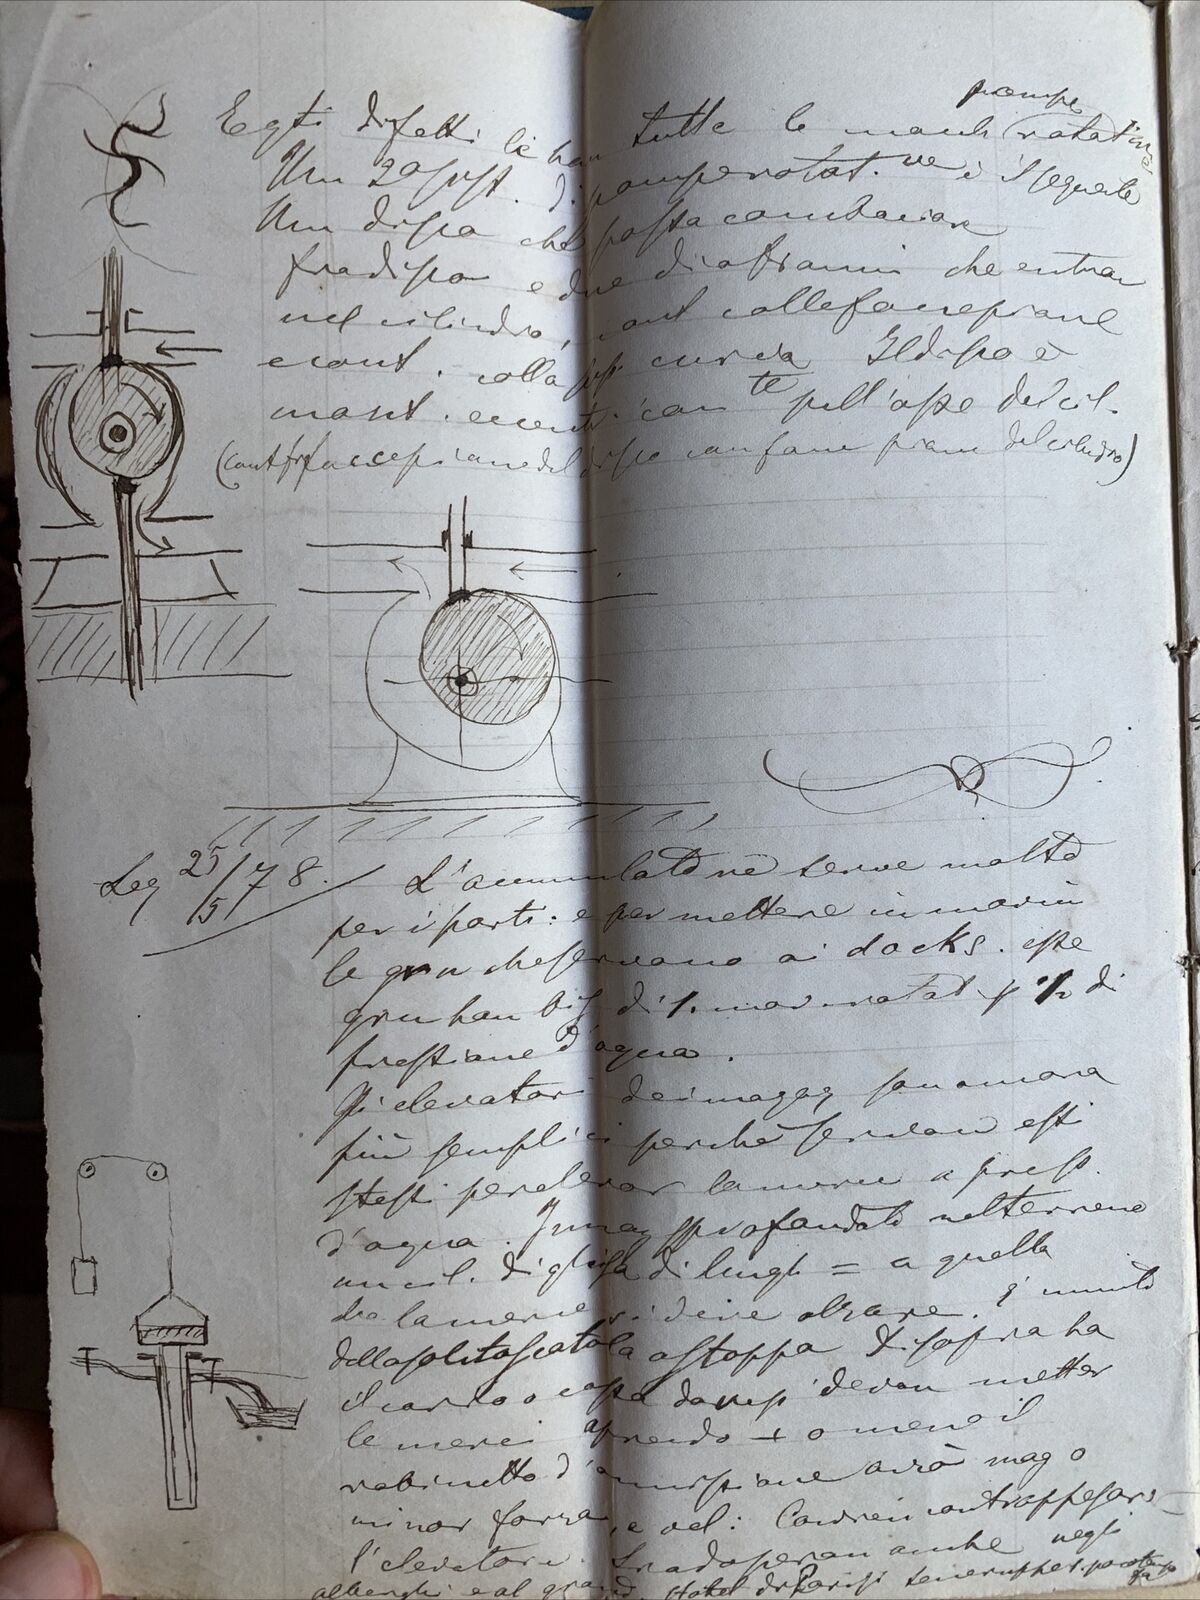 pompe
E qti difetti li han tutte le mach rotative
Un 2o sist. di pompe rotat.ve è il seguente
Un disco che possa combaciare
fra disco e due diaframmi che entran
nel cilindro, cont colle facce piane
e cont. colla sup. curva Il disco è
mont. eccentricam te sull'asse del cil.
(cont fra facce piane del disco con facce piane del cilindro)
Lez 25/5/78. L'accumulatore serve molto
per i porti: e per mettere in movim
le gru che servono ai docks. esse
gru han bis di 1. mov rotat e 1/2 di
pressione d'acqua.
Gli elevatori dei magaz son ancora
più semplici perchè servono essi
stessi per elevar la merce a press.
d'acqua. sprofondato nel terreno
un cil. di ghisa di lungh = a quella
la merce si deve alzare. È munito
della solita scatola a stoppa Di sopra ha
il carro o cassa devon metter
le merci aprendo + o meno il
rubinetto d'ammissione avrà mag o
minor forza, e vel: Convien contrappesar
l'elevatore. Si adoperan anche negli
alberghi e al grand Hotel di Parigi